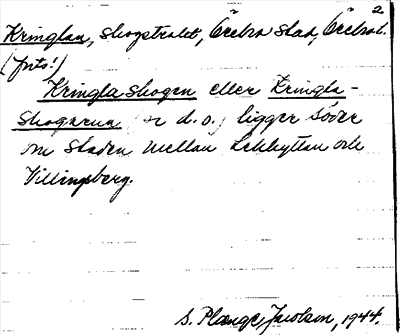 2
Kringlan, skogstrakt, Örebro stad, Örebro l.
(forts!)
Kringlaskogen eller Kringla-
skogarna ( d. o.) ligger söder
om staden mellan Lekhyttan och
Villingsberg.
S. Plange Jacobson, 1944.